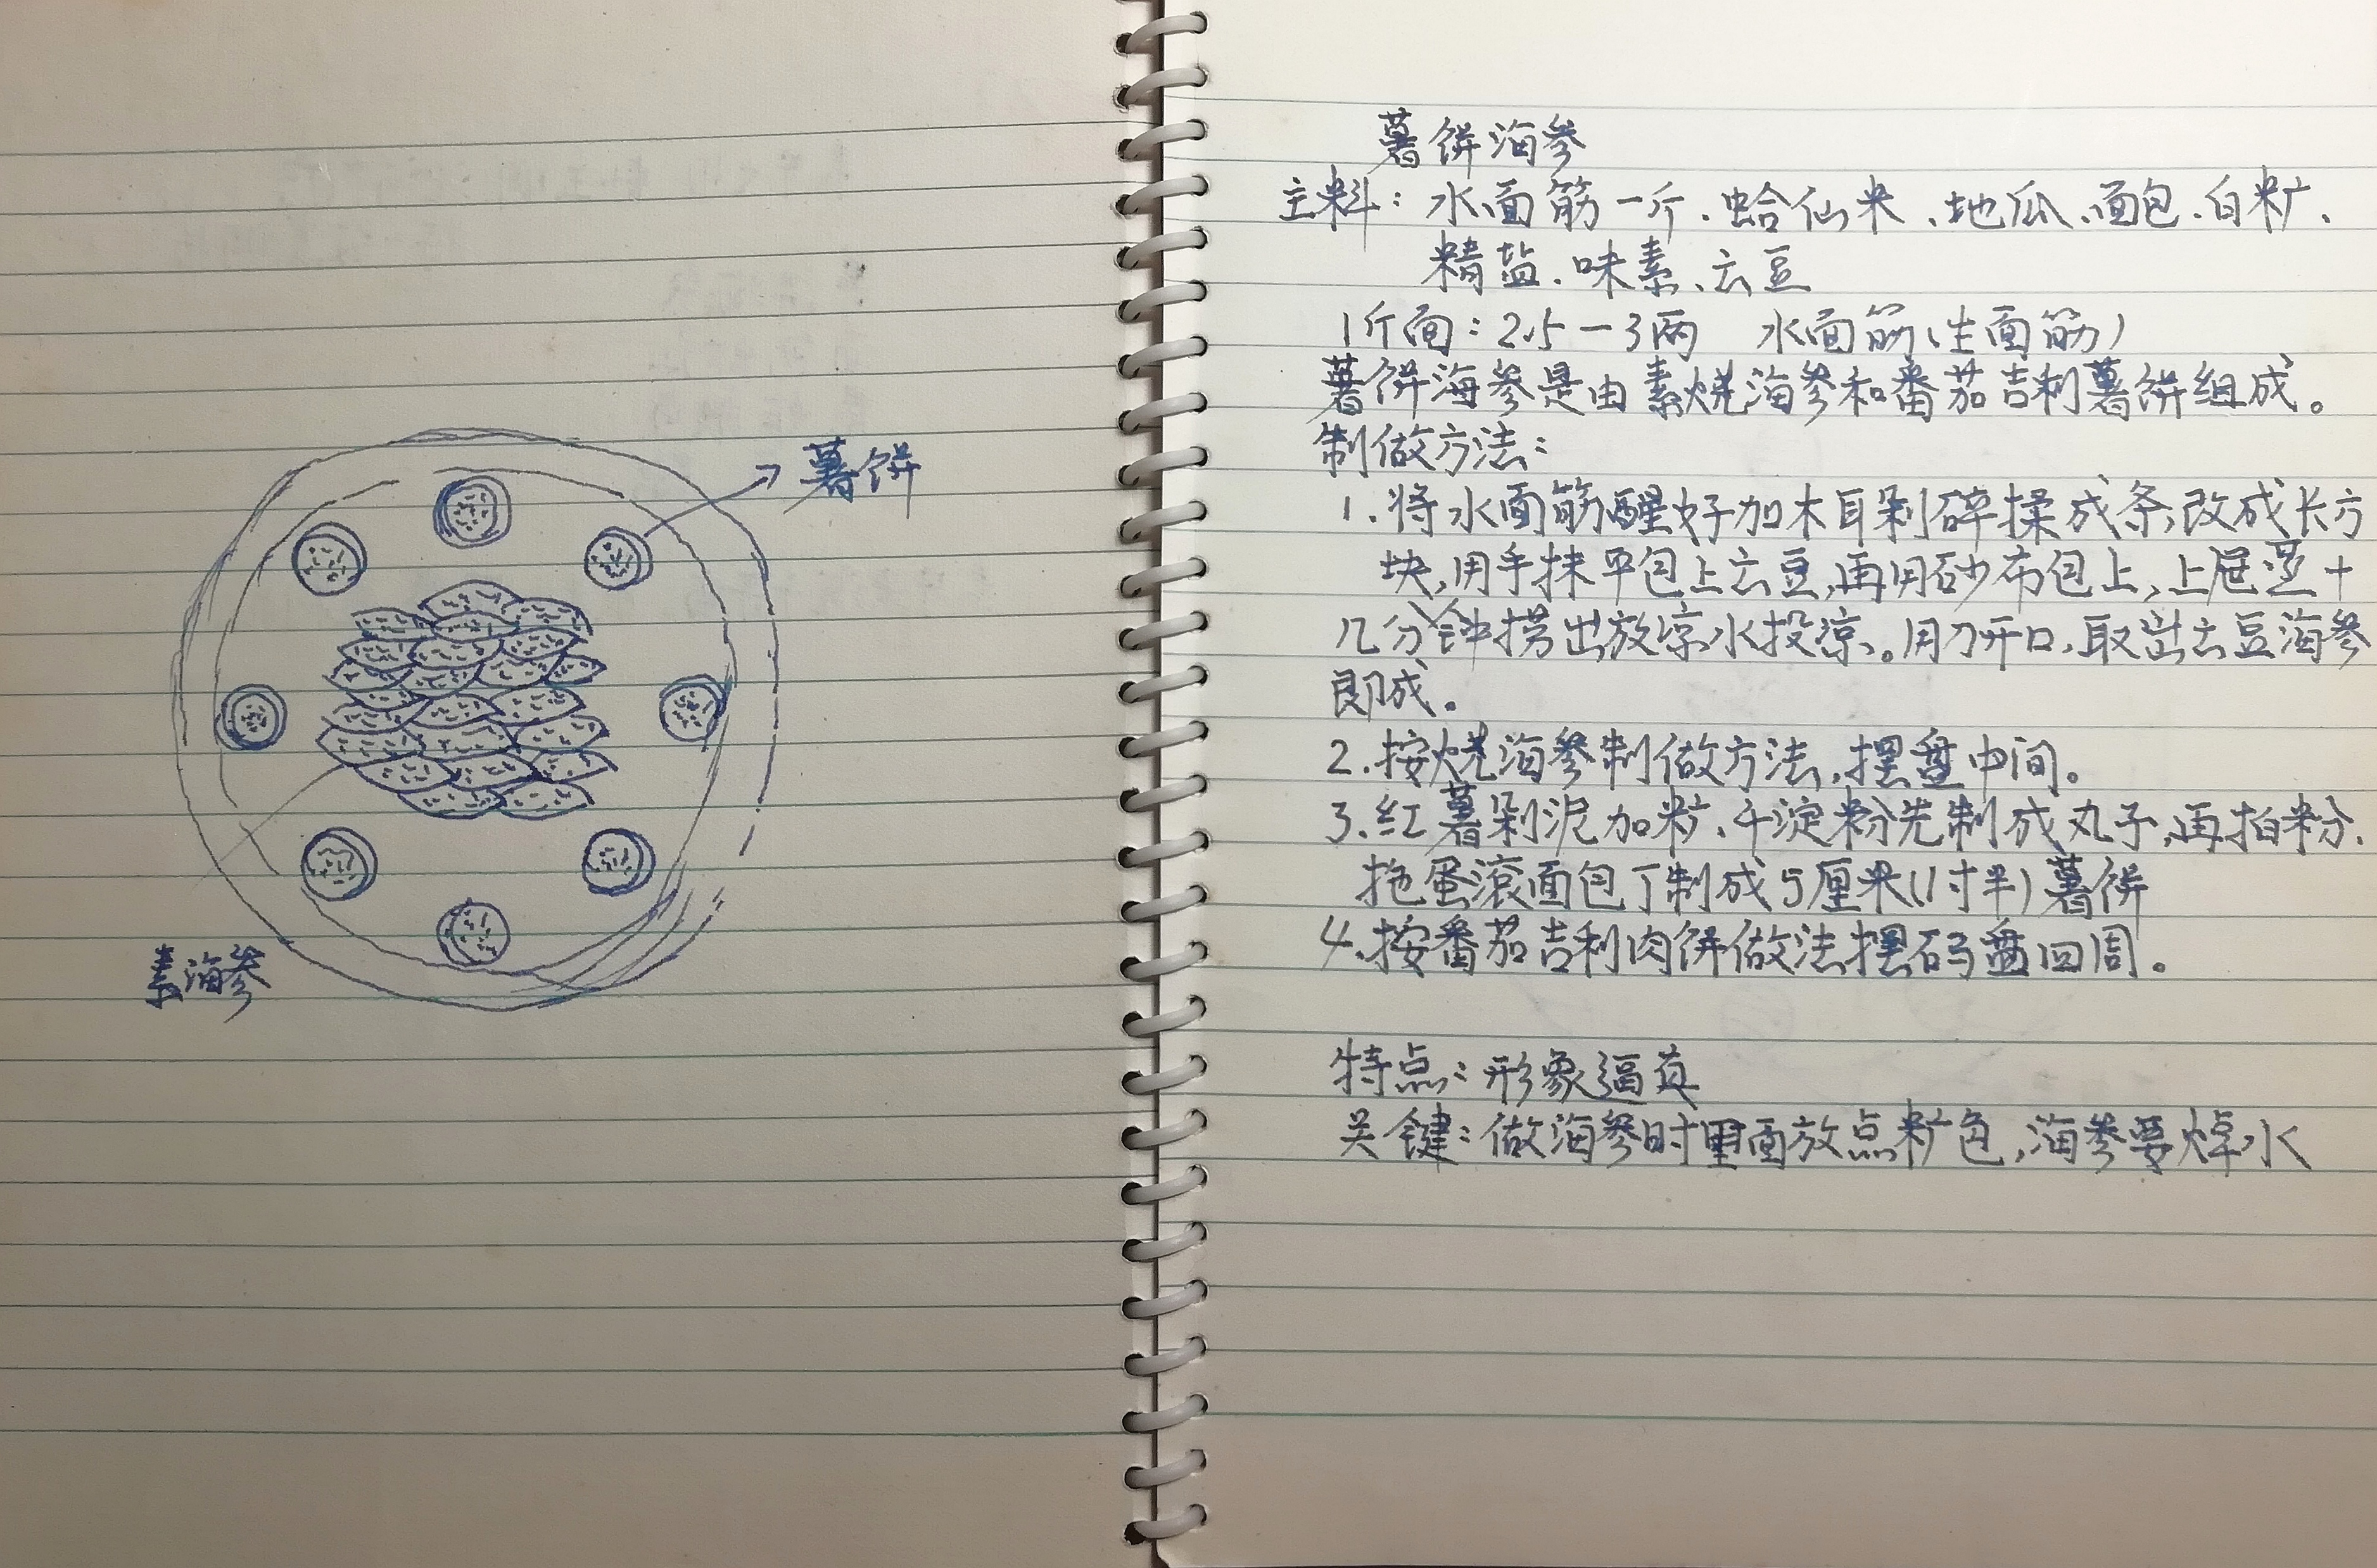 薯饼
素海参
薯饼海参
主料：水面筋一斤、蛤仙米、地瓜、面包、白籿、
精盐、味素、云豆
1斤面：2.5－3两 水面筋（生面筋）
薯饼海参是由素烧海参和番茄吉利薯饼组成。
制做方法：
1.将水面筋醒好加木耳剁碎揉成条，改成长方
块，用手抹平包上云豆，再用砂布包上，上屉烫十
几分钟捞出放凉水投凉。用刀开口，取出云豆海参
即成。
2.按烧海参制做方法，摆盘中间。
3、红薯剁泥加籿、干淀粉先制成丸子，再拍粉、
拖蛋滚面包丁制成5厘米（1寸半）薯饼
4、按番茄吉利肉饼做法摆码盘四周。
特点：形象逼真
关键：做海参时里面放点籿色，海参要焯水